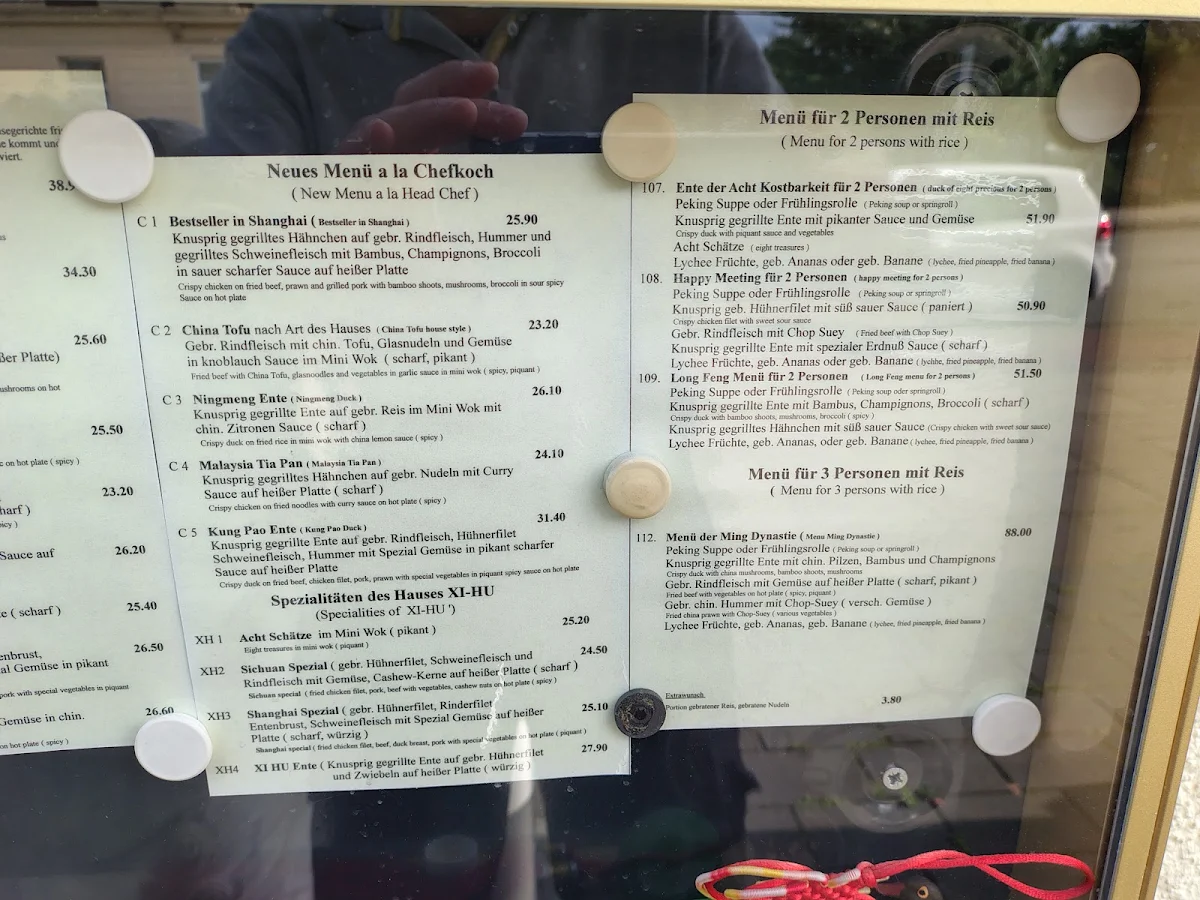 segerichte fri
e kommt und
viert.
38.9
34.30
25.60
ßer Platte)
ushrooms on hot
25.50
c on hot plate ( spicy )
23.20
harf )
icy )
26.20
Sauce auf
25.40
te ( scharf )
26.50
enbrust,
al Gemüse in pikant
pork with special vegetables in piquant
26.60
Gemüse in chin.
on hot plate ( spicy )
Neues Menü a la Chefkoch
( New Menu a la Head Chef )
C 1 Bestseller in Shanghai ( Bestseller in Shanghai ) 25.90
Knusprig gegrilltes Hähnchen auf gebr. Rindfleisch, Hummer und
gegrilltes Schweinefleisch mit Bambus, Champignons, Broccoli
in sauer scharfer Sauce auf heißer Platte
Crispy chicken on fried beef, prawn and grilled pork with bamboo shoots, mushrooms, broccoli in sour spicy
Sauce on hot plate
C 2 China Tofu nach Art des Hauses ( China Tofu house style ) 23.20
Gebr. Rindfleisch mit chin. Tofu, Glasnudeln und Gemüse
in knoblauch Sauce im Mini Wok ( scharf, pikant )
Fried beef with China Tofu, glasnoodles and vegetables in garlic sauce in mini wok ( spicy, piquant )
C 3 Ningmeng Ente ( Ningmeng Duck ) 26.10
Knusprig gegrillte Ente auf gebr. Reis im Mini Wok mit
chin. Zitronen Sauce ( scharf )
Crispy duck on fried rice in mini wok with china lemon sauce ( spicy )
C 4 Malaysia Tia Pan ( Malaysia Tia Pan ) 24.10
Knusprig gegrilltes Hähnchen auf gebr. Nudeln mit Curry
Sauce auf heißer Platte ( scharf )
Crispy chicken on fried noodles with curry sauce on hot plate ( spicy )
C 5 Kung Pao Ente ( Kung Pao Duck ) 31.40
Knusprig gegrillte Ente auf gebr. Rindfleisch, Hühnerfilet
Schweinefleisch, Hummer mit Spezial Gemüse in pikant scharfer
Sauce auf heißer Platte
Crispy duck on fried beef, chicken filet, pork, prawn with special vegetables in piquant spicy sauce on hot plate
Spezialitäten des Hauses XI-HU
(Specialities of XI-HU ')
XH 1 Acht Schätze im Mini Wok ( pikant ) 25.20
Eight treasures in mini wok ( piquant )
XH2 Sichuan Spezial ( gebr. Hühnerfilet, Schweinefleisch und 24.50
Rindfleisch mit Gemüse, Cashew-Kerne auf heißer Platte ( scharf )
Sichuan special ( fried chicken filet, pork, beef with vegetables, cashew nuts on hot plate ( spicy )
XH3 Shanghai Spezial ( gebr. Hühnerfilet, Rinderfilet 25.10
Entenbrust, Schweinefleisch mit Spezial Gemüse auf heißer
Platte ( scharf, würzig )
Shanghai special ( fried chicken filet, beef, duck breast, pork with special vegetables on hot plate ( piquant )
XH4 XI HU Ente ( Knusprig gegrillte Ente auf gebr. Hühnerfilet 27.90
und Zwiebeln auf heißer Platte ( würzig )
Menü für 2 Personen mit Reis
( Menu for 2 persons with rice )
107. Ente der Acht Kostbarkeit für 2 Personen ( duck of eight precious for 2 persons )
Peking Suppe oder Frühlingsrolle ( Peking soup or springroll )
Knusprig gegrillte Ente mit pikanter Sauce und Gemüse 51.90
Crispy duck with piquant sauce and vegetables
Acht Schätze ( eight treasures )
Lychee Früchte, geb. Ananas oder geb. Banane ( lychee, fried pineapple, fried banana )
108. Happy Meeting für 2 Personen ( happy meeting for 2 persons )
Peking Suppe oder Frühlingsrolle ( Peking soup or springroll )
Knusprig geb. Hühnerfilet mit süß sauer Sauce ( paniert ) 50.90
Crispy chicken filet with sweet sour sauce
Gebr. Rindfleisch mit Chop Suey ( Fried beef with Chop Suey )
Knusprig gegrillte Ente mit spezialer Erdnuß Sauce ( scharf )
Lychee Früchte, geb. Ananas oder geb. Banane ( lychhe, fried pineapple, fried banana )
109. Long Feng Menü für 2 Personen ( Long Feng menu for 2 persons ) 51.50
Peking Suppe oder Frühlingsrolle ( Peking soup oder springroll )
Knusprig gegrillte Ente mit Bambus, Champignons, Broccoli ( scharf )
Crispy duck with bamboo shoots, mushrooms, broccoli ( spicy )
Knusprig gegrilltes Hähnchen mit süß sauer Sauce (Crispy chicken with sweet sour sauce)
Lychee Früchte, geb. Ananas, oder geb. Banane ( lychee, fried pineapple, fried banana )
Menü für 3 Personen mit Reis
( Menu for 3 persons with rice )
112. Menü der Ming Dynastie ( Menu Ming Dynastie ) 88.00
Peking Suppe oder Frühlingsrolle ( Peking soup or springroll )
Knusprig gegrillte Ente mit chin. Pilzen, Bambus und Champignons
Crispy duck with china mushrooms, bamboo shoots, mushrooms
Gebr. Rindfleisch mit Gemüse auf heißer Platte ( scharf, pikant )
Fried beef with vegetables on hot plate ( spicy, piquant )
Gebr. chin. Hummer mit Chop-Suey ( versch. Gemüse )
Fried china prawn with Chop-Suey ( various vegetables )
Lychee Früchte, geb. Ananas, geb. Banane ( lychee, fried pineapple, fried banana )
Extrawunsch
Portion gebratener Reis, gebratene Nudeln 3.80